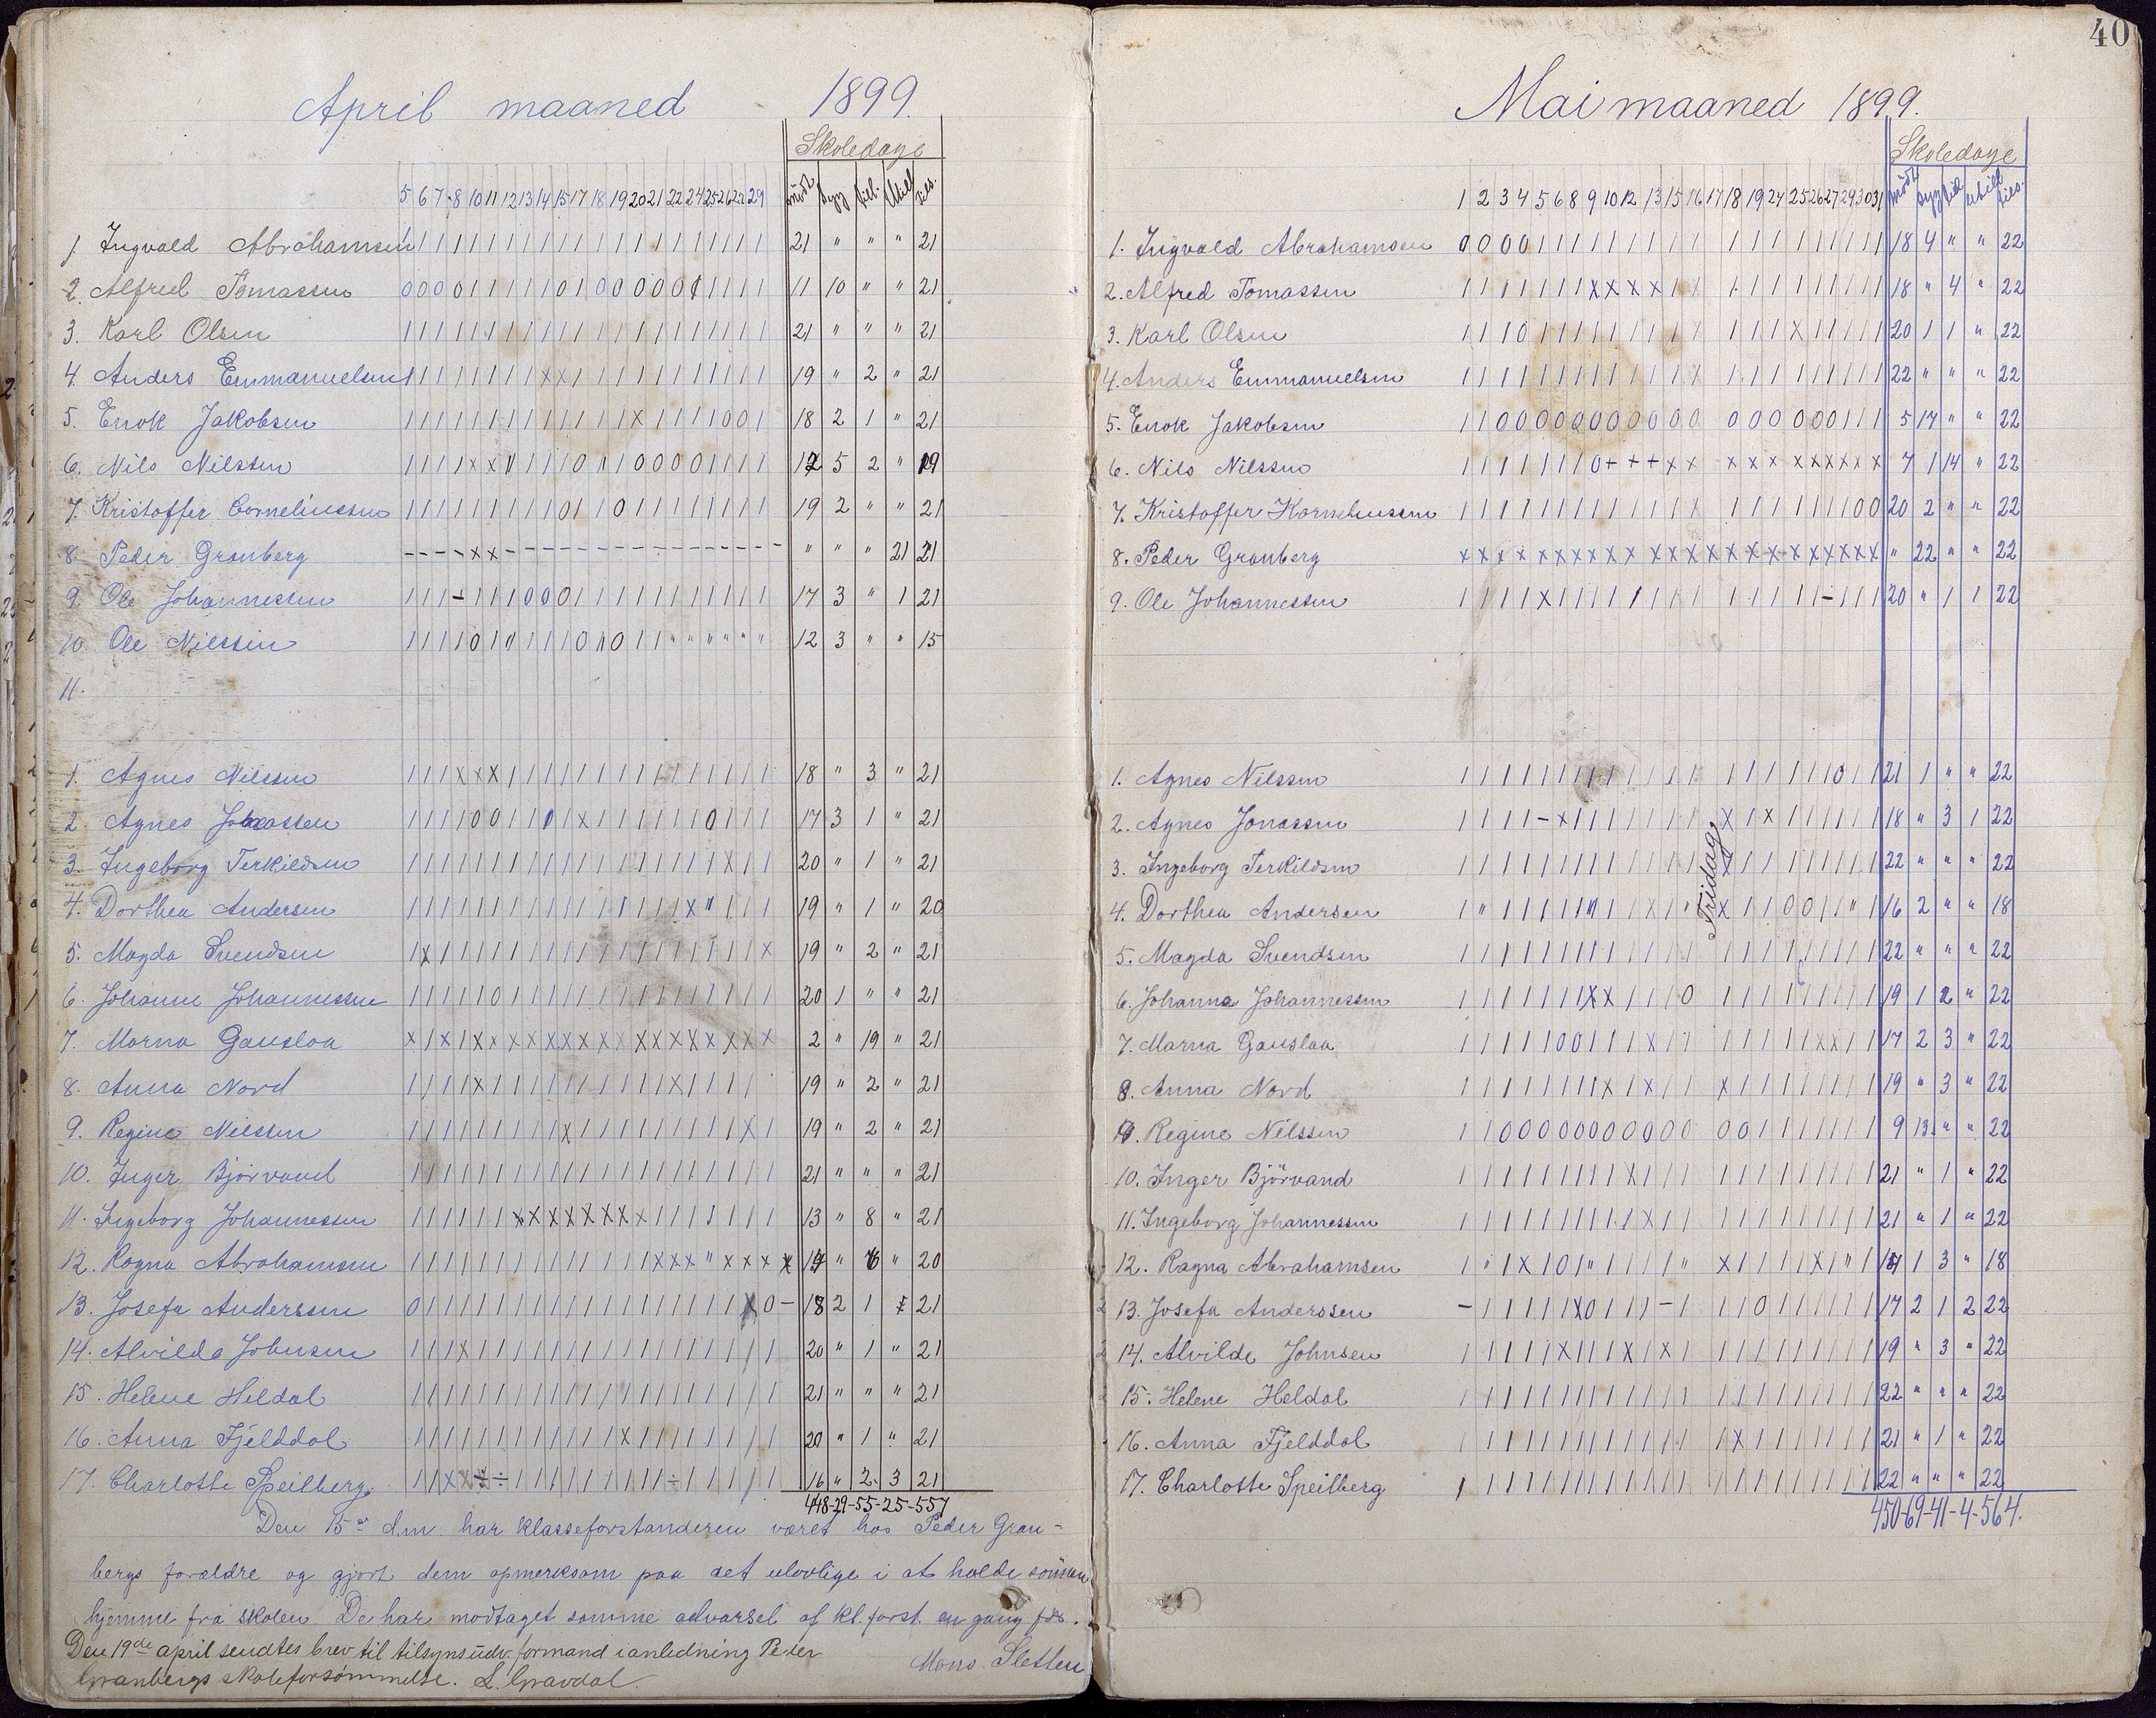 April maaned 1899.
Skoledage
5 6 7 8 10 11 12 13 14 15 17 18 19 20 21 22 24 25 26 27 29 mødt syg till. Utill tils.
1. Ingvald Abrahamsen 21 " " " 21
2. Alfred Tomassen 11 10 " " 21
3. Karl Olsen 21 " " " 21
4. Anders Emmanuelsen 19 " 2 " 21
5. Enok Jakobsen 18 2 1 " 21
6. Nils Nilssen 12 5 2 " 19
7. Kristoffer Corneliussen 19 2 " " 21
8. Peder Granberg " " " 21 21
9. Ole Johannessen 17 3 " 1 21
10. Ole Nilssen 12 3 " " 15
11.
1. Agnes Nilssen 18 " 3 " 21
2. Agnes Jonassen 17 3 1 " 21
3. Ingeborg Terkildsen 20 " 1 " 21
4. Dorthea Andersen 19 " 1 " 20
5. Magda Svendsen 19 " 2 " 21
6. Johanne Johannessen 20 1 " " 21
7. Marna Gauslaa 2 " 19 " 21
8. Anna Nord 19 " 2 " 21
9. Regine Nilssen 19 " 2 " 21
10. Inger Bjørvand 21 " " " 21
11. Ingeborg Johannessen 13 " 8 " 21
12. Ragna Abrahamsen " " 20
13. Josefa Anderssen 18 2 1 21
14. Alvilda Johnsen 20 " 1 " 21
15. Helene Heldal 21 " " " 21
16. Anna Fjelddal 20 " 1 " 21
17. Charlotte Speilberg. 16 " 2 3 21
448-29-55-25-557
Den 15de dm. har klasseforstanderen været hos Peder Gran-
bergs forældre og gjort dem opmerksom paa det ulovlige i at holde sønnen
hjemme fra skolen. De har modtaget samme advarsel af kl.forst. en gang før.
Mons Sletten
Den 19de april sendtes brev til tilsynsudv. formand i anledning Peder
Granbergs skoleforsømmelse. L. Gravdal.
40
Mai maaned 1899.
Skoledage
1 2 3 4 5 6 8 9 10 12 13 15 16 17 18 19 24 25 26 27 29 30 31 mødt syg till utill tils.
1. Ingvald Abrahamsen 0 0 0 0 1 1 1 1 1 1 1 1 1 1 1 1 1 1 1 1 1 1 18 4 " " 22
2. Alfred Tomassen 18 " 4 " 22
3. Karl Olsen 20 1 1 " 22
4. Anders Emmanuelsen 22 " " " 22
5. Enok Jakobsen 5 17 " " 22
6. Nils Nilssen 7 1 14 " 22
7. Kristoffer Kornelinssen 20 2 " " 22
8. Peder Granberg " 22 " " 22
9. Ole Johannessen 20 " 1 1 22
1. Agnes Nilssen 21 1 " " 22
2. Agnes Jonassen 18 " 3 1 22
3. Ingeborg Terkildsen 22 " " " 22
4. Dorthea Andersen 16 2 " " 18
5. Magda Svendsen 22 " " " 22
6. Johanna Johannessen 19 1 2 " 22
7. Marna Gauslaa 17 2 3 " 22
8. Anna Nord 19 " 3 " 22
9. Regine Nilssen 9 13 " " 22
10. Inger Bjørvand 21 " 1 " 22
11. Ingeborg Johannessen 21 " 1 " 22
12. Ragna Abrahamsen 14 1 3 " 18
13. Josefa Anderssen 17 2 1 2 22
14. Alvilde Johnsen 19 " 3 " 22
15. Helene Heldal 22 " " " 22
16. Anna Fjelddal 21 " 1 " 22
17. Charlotte Speilberg 22 " " " 22
Fridag
450-69-41-4-564.